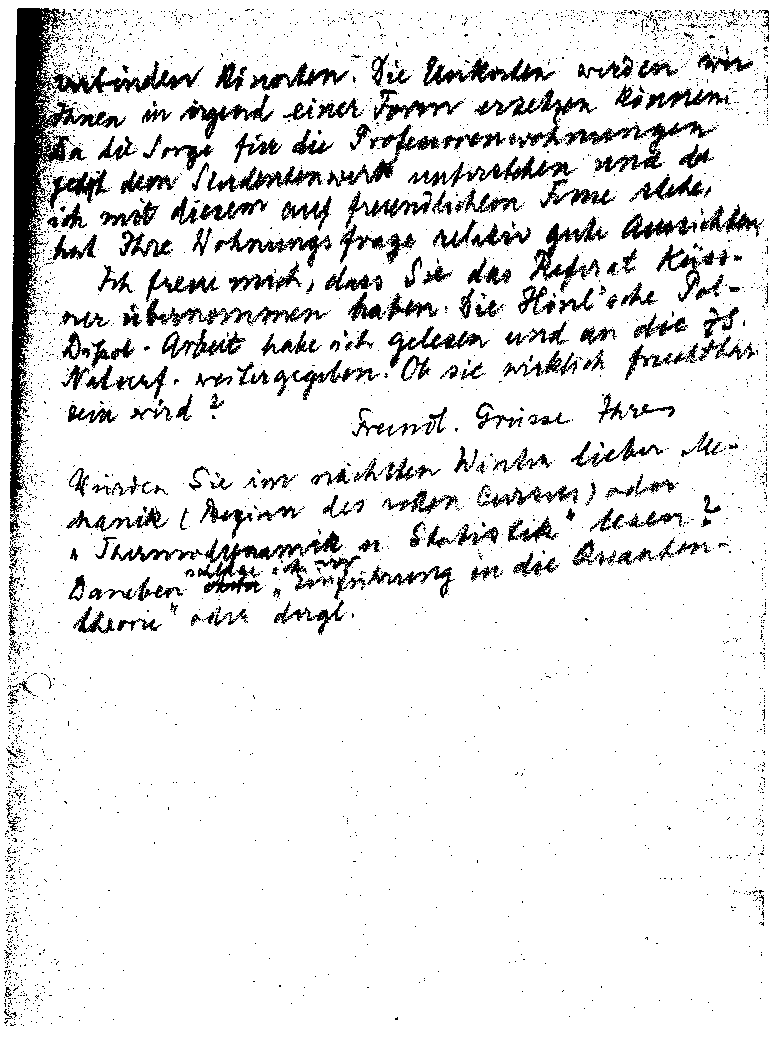 verbinden könnten. Die Unkosten werden wir
Ihnen in irgend einer Form ersetzen können.
Da die Sorge für die Professorenwohnungen
jetzt dem Studentenwerk unterstehen und da
ich mit diesem auf freundlichem Fusse stehe,
hat Ihre Wohnungsfrage relativ gute Aussichten
Ich freue mich, dass Sie das Referat Küss-
ner übernommen haben. Die Hönl'sche Pol-
Dipol-Arbeit habe ich gelesen und an die ZS.
Naturf. weitergegeben. Ob sie wirklich fruchtbar
sein wird?
Freundl. Grüsse Ihres
Würden Sie im nächsten Winter lieber Me-
chanik (Beginn des Cursus) oder
"Thermodynamik u Statistik" lesen?
Daneben schlage ich vor "Einführung in die Quanten-
theorie" oder dergl.